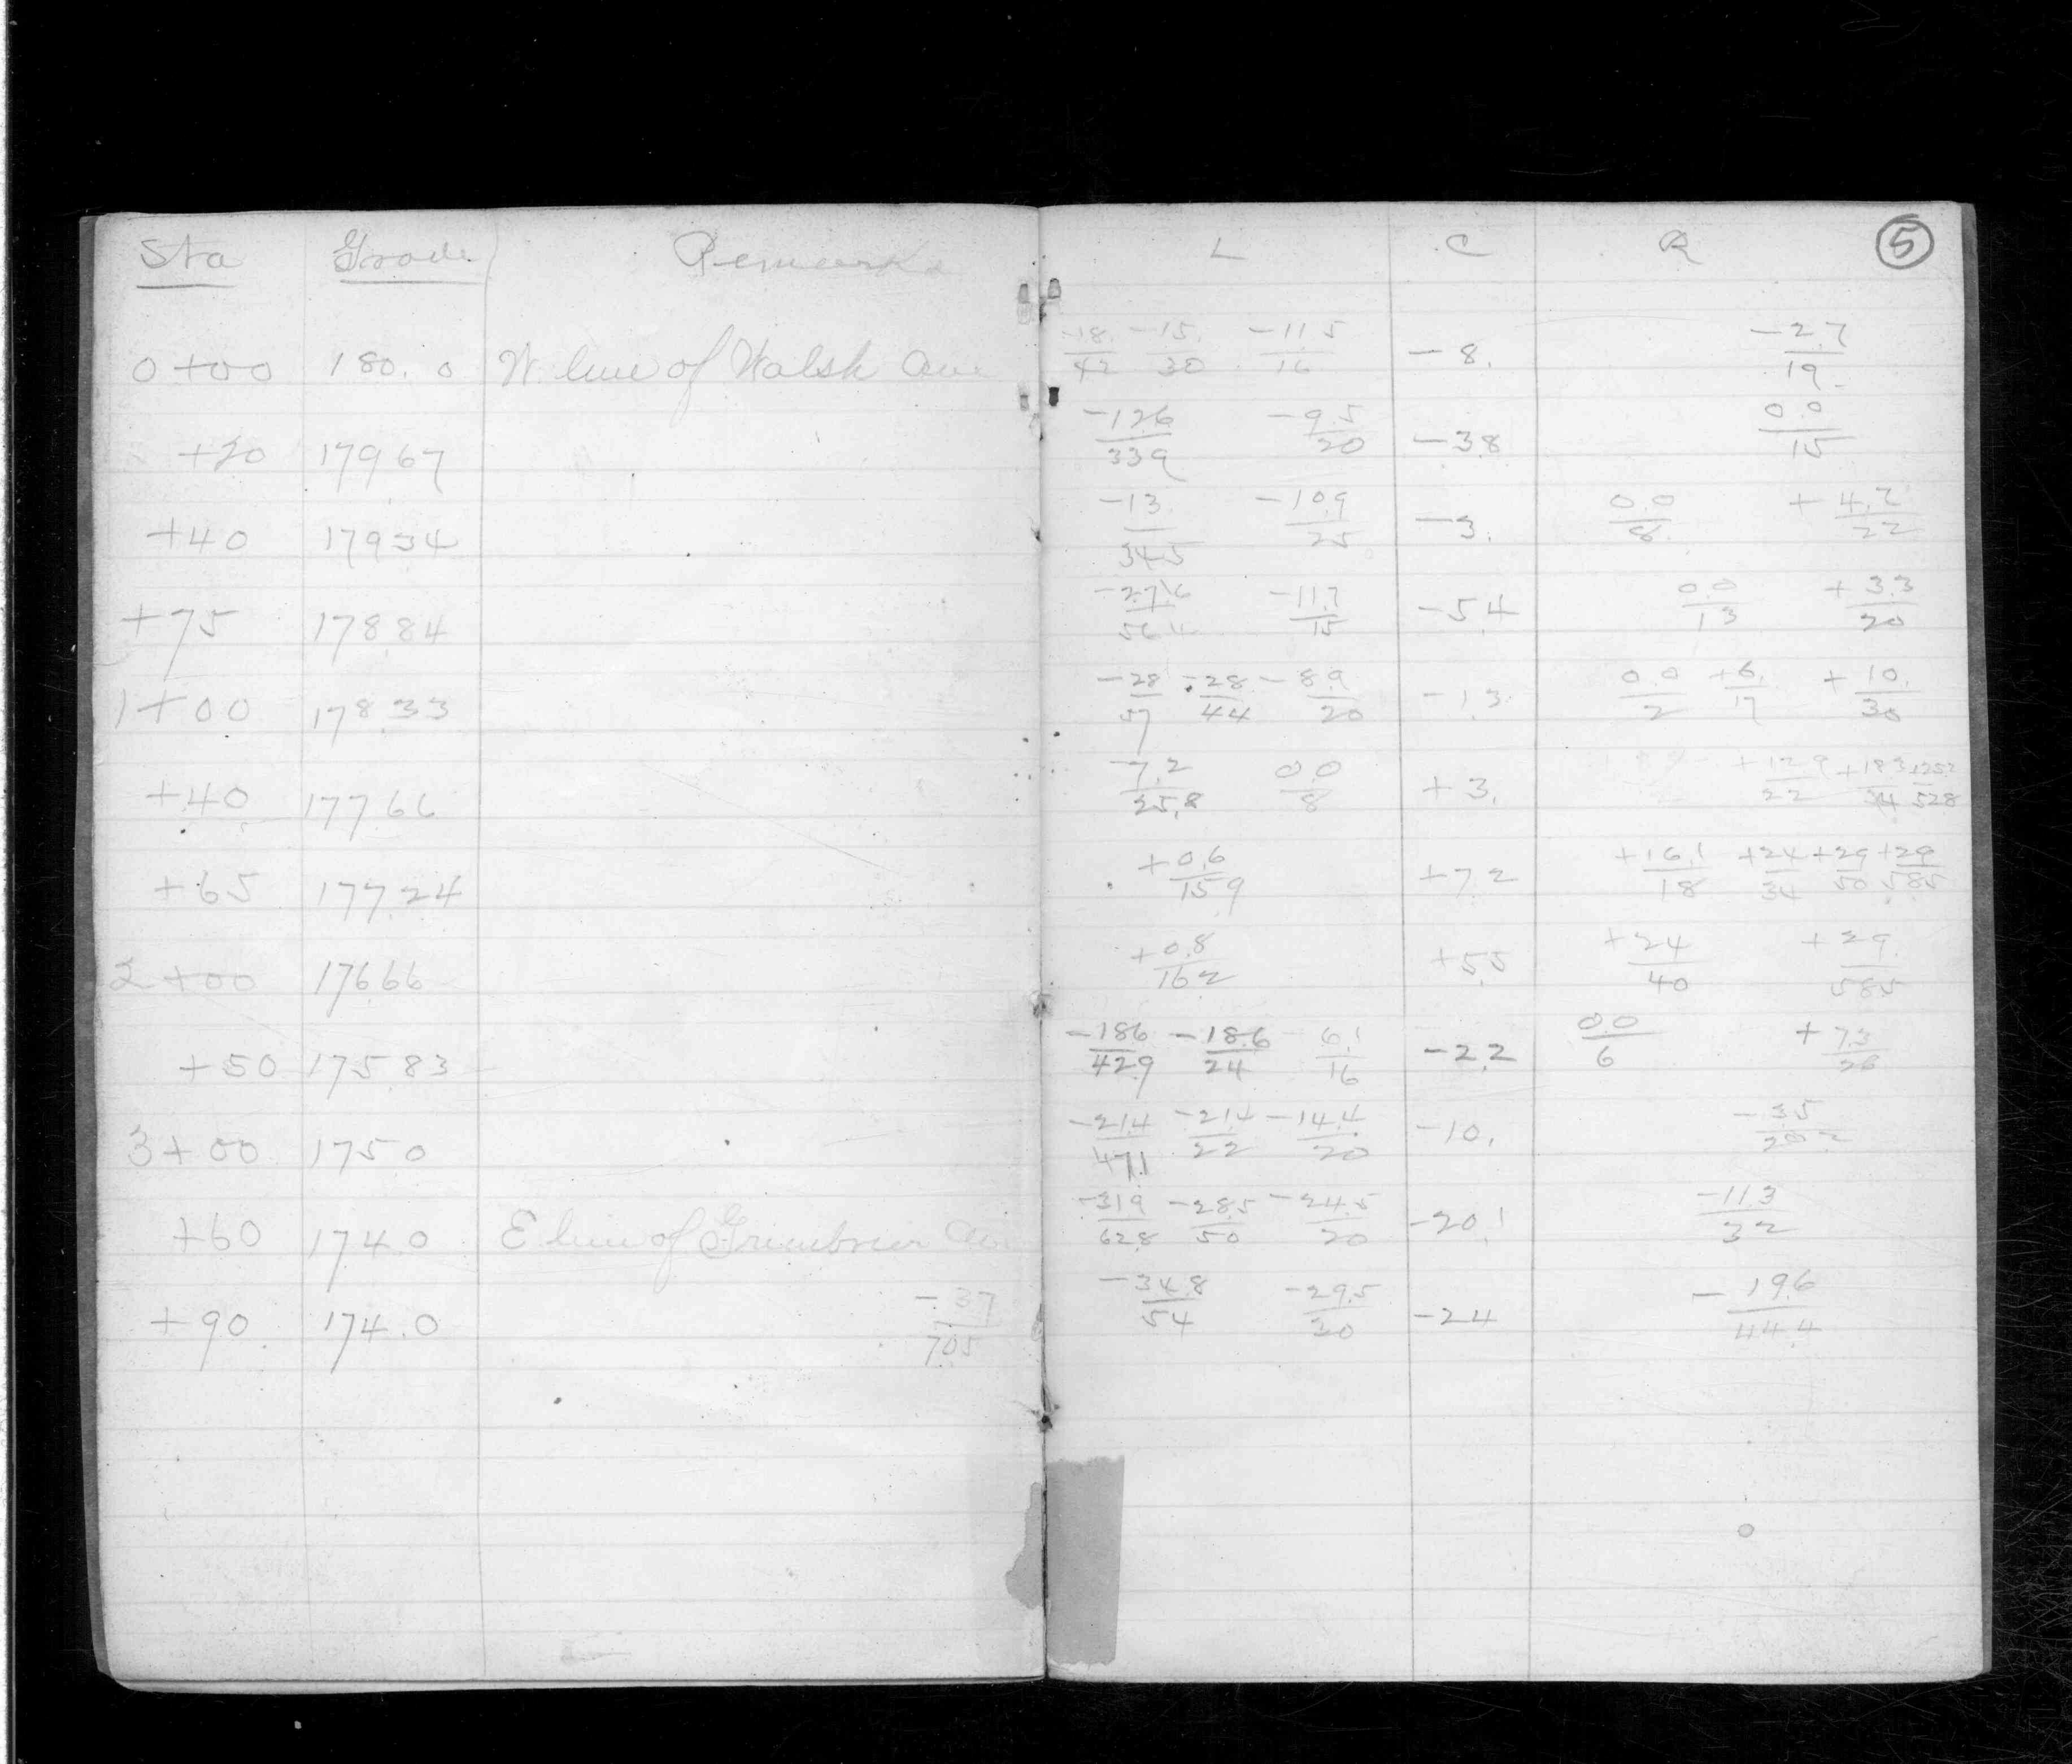 Sta Grade Remarks L C R 5
0+00 180.0 W. line of Walsh Ave -18./42 -15./30 -11.5/16 -8. -2.7/19
+20 179.67 -12.6/33.9 -9.5/20 -3.8 0.0/15
+40 179.34 -13./34.5 -10.9/25 -3. 0.0/8. +4.2/22
+75 178.84 -27.6/56.4 -11.7/15 -5.4 0.0/13 +3.3/20
1+00 178.33 -28/57 -28/44 -8.9/20 -1.3 0.0/2 +6./17 +10./30
+40 177.66 -7.2/25.8 0.0/8 +3. +12.9/22 +18.3/34 +25.2/52.8
+65 177.24 +0.6/15.9 +7.2 +16.1/18 +24/34 +29/50 +29/58.5
2+00 176.66 +0.8/16.2 +5.5 +24/40 +29./58.5
+50 175.83 -18.6/42.9 -18.6/24 -6.1/16 -2.2 0.0/6 +7.3/26
3+00 175.0 -21.4/47.1 -21.4/22 -14.4/20 -10. -3.5/20.2
+60 174.0 E line of Greenbrier Av -31.9/62.8 -28.5/50 -24.5/20 -20.1 -11.3/32
+90 174.0 -37/70.5 -34.8/54 -29.5/20 -24 -19.6/44.4